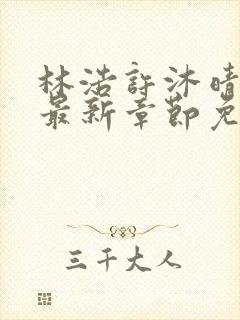 林浩許沐晴
最新章節免
三千大人